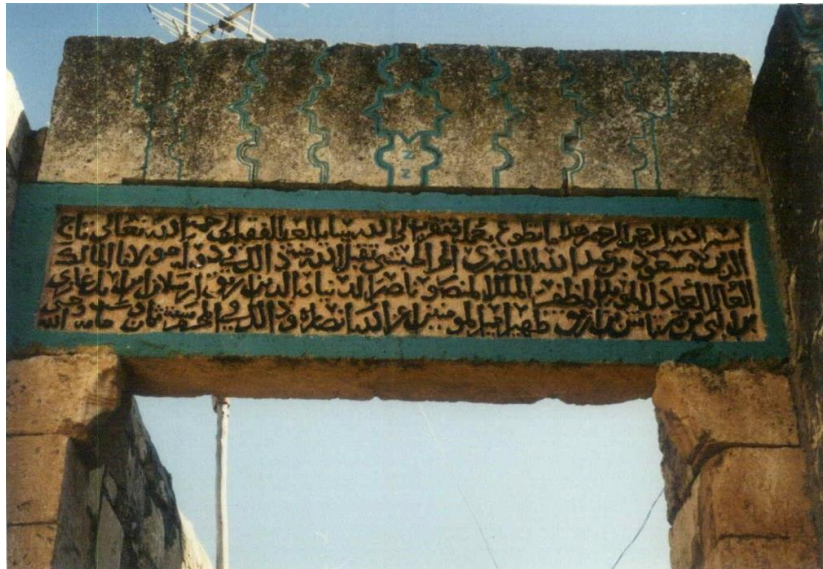 بسم الله الرحمن الرحيم هذا ما تطوع بعمله وتقرب الى الله ببنائه العبد الفقير الى رحمة الله تعالى تاج
الدين مسعود بن عبد الله الناصري الحبشي تقبل الله منه وذلك في دولة مولانا الملك
العالم العادل المؤيد المظفر الملك المنصور ناصر الدنيا والدين ارتق ارسلان بن ايل غازي
بن البي بن تمرتاش بن ارتق ظهير امير المؤمنين اعز الله انصاره وذلك في المحرم سنة ثمان